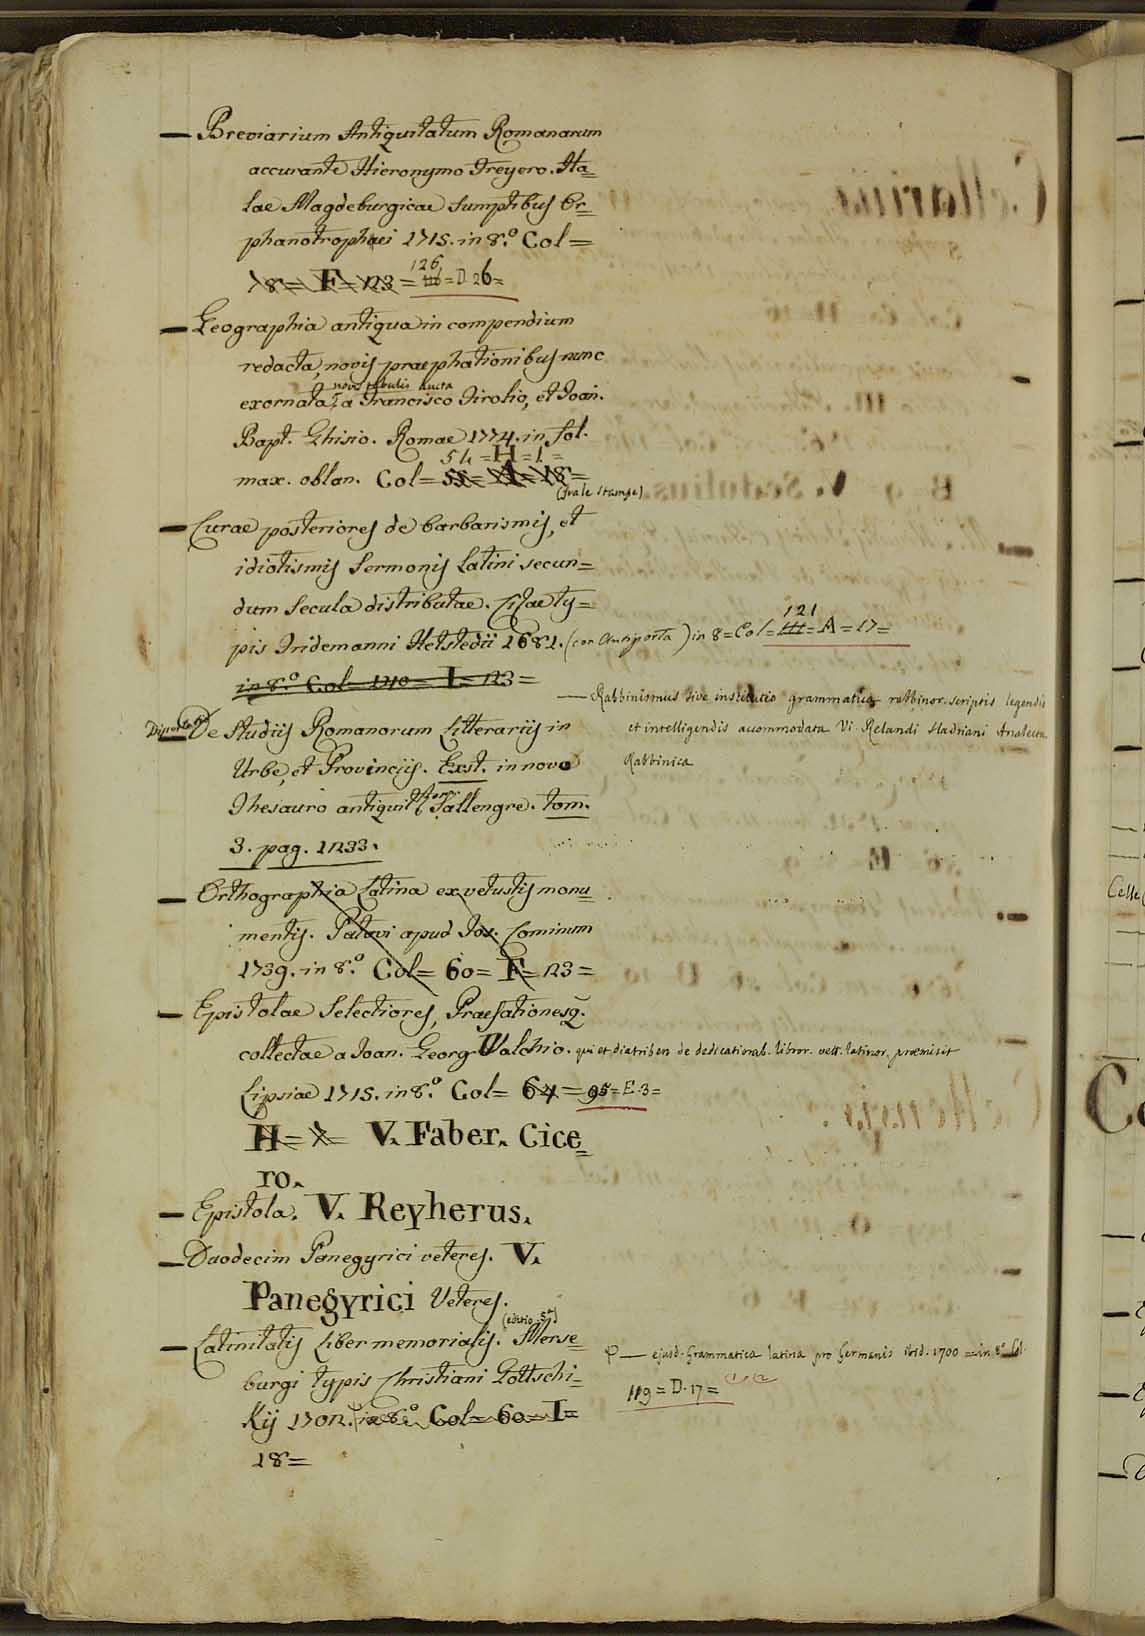 — Breviarium Antiquitatum Romanarum
accurante Hieronymo Freyero. Ha=
lae Magdeburgicae Sumptibus Or=
phanotrophaei 1715. in 8.º Col=
78= F= 123 = 126 = D 26=
— Geographia antiqua in compendium
redacta, novis praephationibus nunc
novis tabulis aucta
exornata, a Francisco Tirolio, et Joan.
Bapt. Ghisio. Romae 1774. in fol.
54 = H = 1 =
max. oblan. Col= 55= A= 18=
(fra le Stampe)
— Curae posteriores de barbarismis, et
idiotismis Sermonis Latini secun=
dum Secula distributae. Cizae ty=
pis Fridemanni Hetstedii 1681. (con Antiporta) in 8 = Col= 121 = A = 17=
in 8.º Col= 140= I= 123=
— Rabbinismus sive institutio grammatica rabbinor. scriptis legendis
et intelligendis accommodata V. Relandi Hadriani Analecta
Rabbinica
— De Studiis Romanorum Litterariis in
Urbe, et Provinciis. Exst. in novo
Thesauro antiquit. Sallengre. tom.
3. pag. 1233.
— Orthographia Latina ex vetustis monu
mentis. Patavi apud Jos. Cominum
1739. in 8.º Col= 60= F= 123=
— Epistolae Selectiores, Praefationesq.
collectae a Joan. Georg. Walchio. qui et diatriben de dedicationib. libror. vett. latinor. praemisit
Lipsiae 1715. in 8.º Col= 64 = 95= E. 3=
H= V. Faber. Cice=
ro.
— Epistola. V. Reyherus.
— Duodecim Panegyrici veteres. V.
Panegyrici Veteres.
(editio 5ª)
— Latinitatis Liber memorialis. Merse=
burgi typis Christiani Gottschi=
Kij 1702. in 8.º Col= 60= I=
18=
— ejusd. Grammatica latina pro Germanis ibid. 1700 = in 8º Col.
119 = D. 17 =